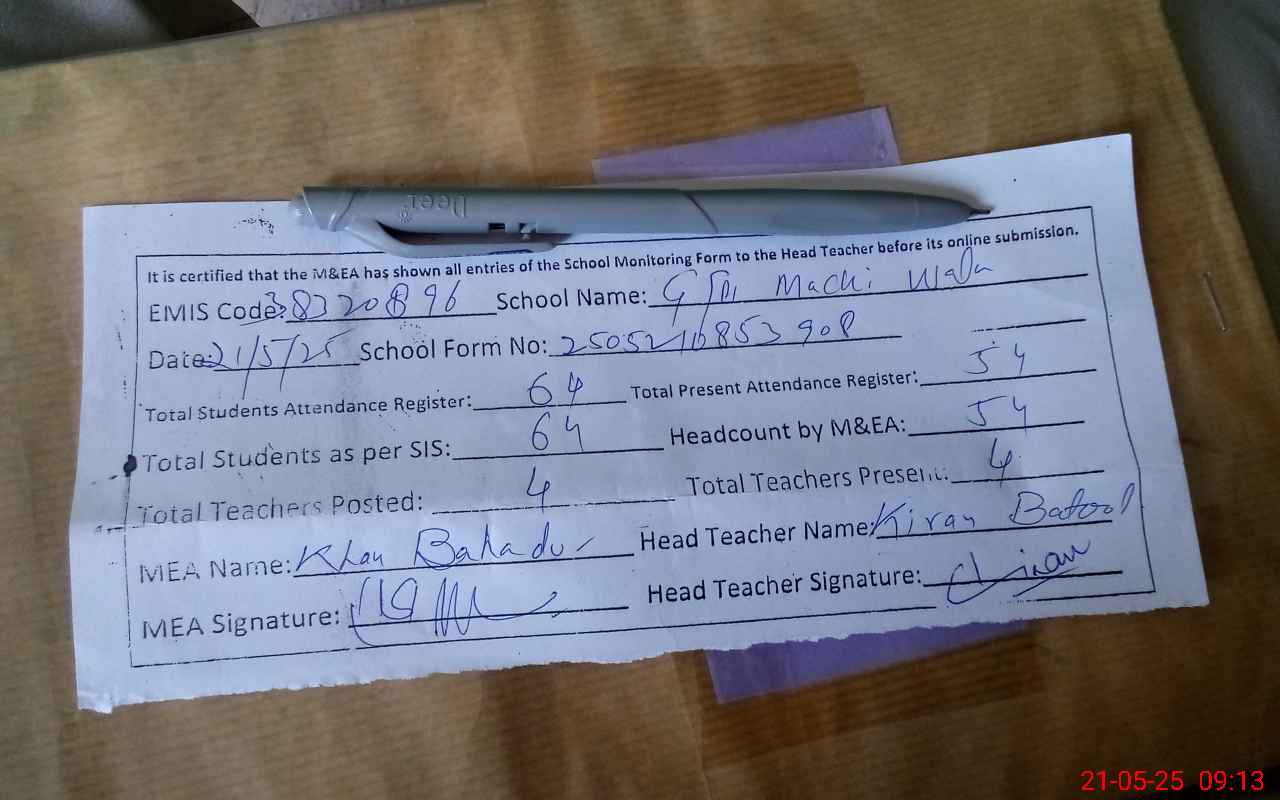 Deer
It is certified that the M&EA has shown all entries of the School Monitoring Form to the Head Teacher before its online submission.
EMIS Code: 38320896 School Name: Machi Wala
Date: 21/5/25 School Form No: 2505210853908
Total Students Attendance Register: 64 Total Present Attendance Register: 54
Total Students as per SIS: 64 Headcount by M&EA: 54
Total Teachers Posted: 4 Total Teachers Present: 4
MEA Name: Khan Bahadur Head Teacher Name: Kiran Batool
MEA Signature: Head Teacher Signature: Kiran
21-05-25 09:13